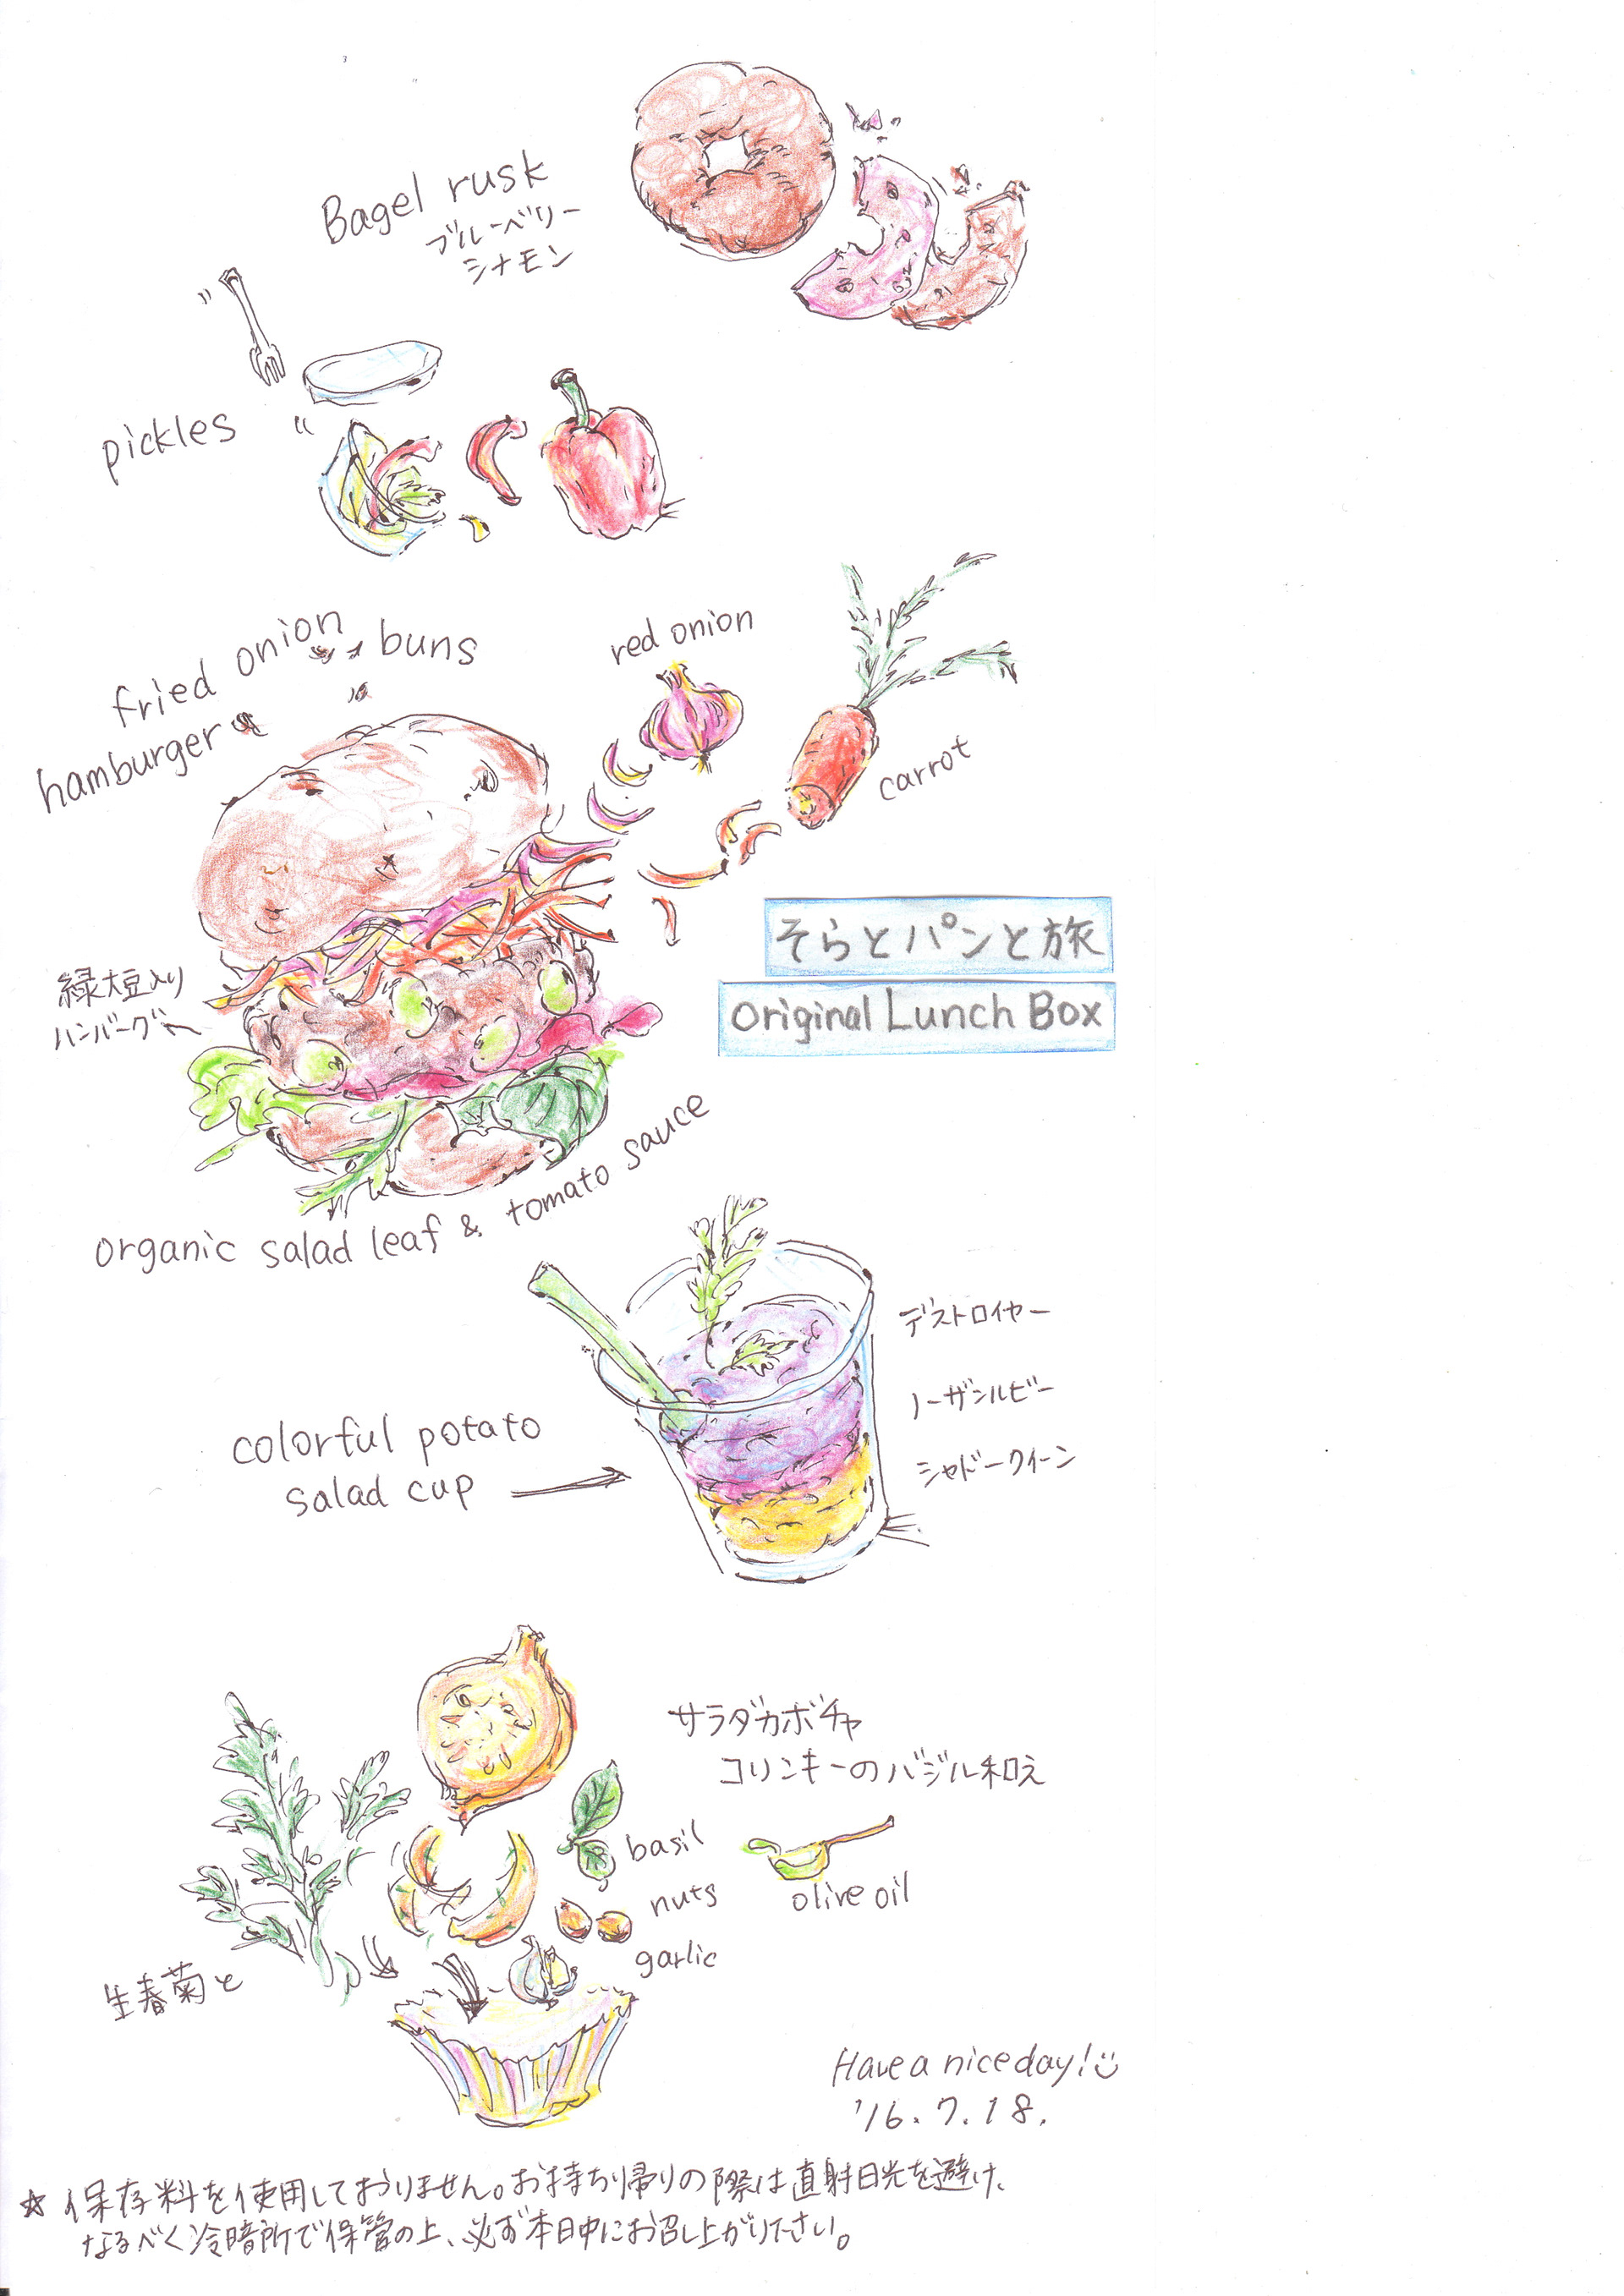 Bagel rusk
ブルーベリー
シナモン
pickles
fried onion buns
hamburger
red onion
carrot
そらとパンと旅
Original Lunch Box
緑大豆入り
ハンバーグ
organic salad leaf & tomato sauce
デストロイヤー
ノーザンルビー
シャドークイーン
colorful potato
salad cup
サラダカボチャ
コリンキーのバジル和え
basil
nuts
olive oil
garlic
生春菊と
Have a nice day!
'16.7.18.
☆ 保存料を使用しておりません。お持ち帰りの際は直射日光を避け、
なるべく冷暗所で保管の上、必ず本日中にお召し上がり下さい。